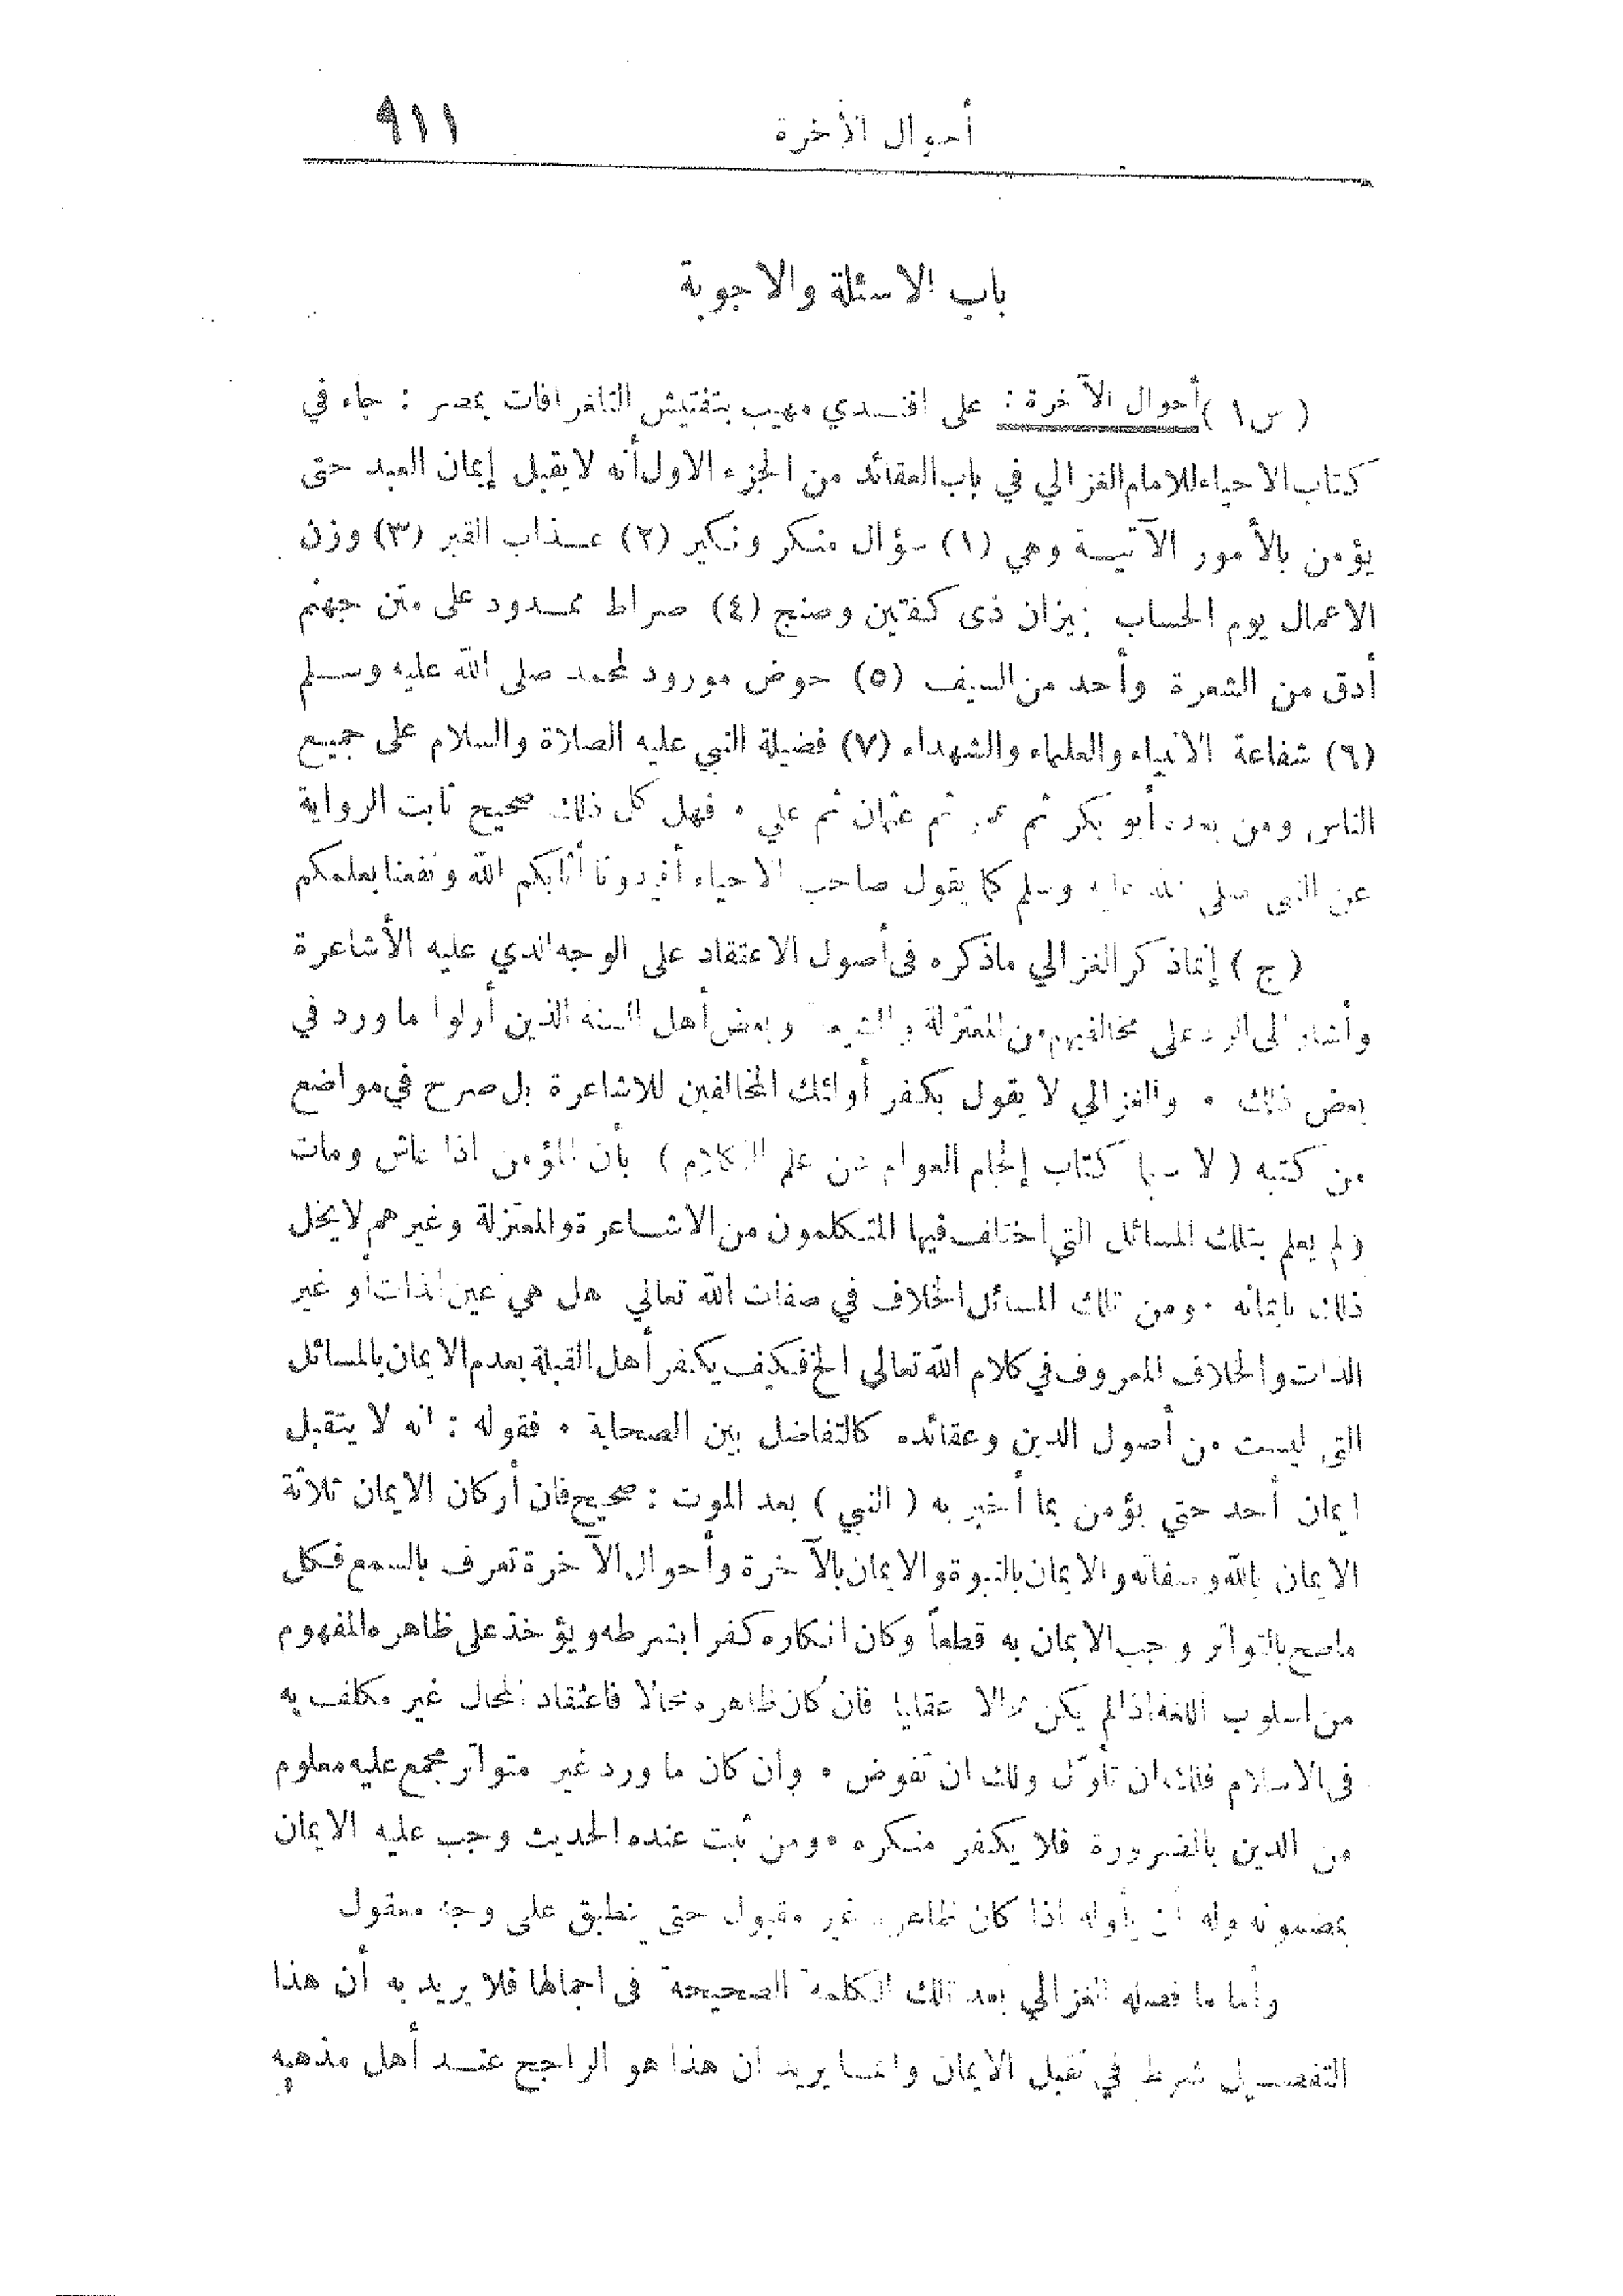 أحوال الآخرة ٩١١
باب الاسئلة والاجوبة
( س١ ) أحوال الآخرة : على افندي مهيب بتفتيش التلغرافات بمصر : جاء في
كتاب الاحياء للامام الغزالي في باب العقائد من الجزء الاول أنه لا يقبل إيمان العبد حتى
يؤمن بالأمور الآتيـة وهي (١) سؤال منكر ونكير (٢) عـذاب القبر (٣) وزن
الاعمال يوم الحساب بميزان ذى كفتين وصنج (٤) صراط ممـدود على متن جهنم
أدق من الشعرة وأحد من السيف (٥) حوض مورود لمحمد صلى الله عليه وسـلم
(٦) شفاعة الانبياء والعلماء والشهداء (٧) فضيلة النبي عليه الصلاة والسلام على جميع
الناس ومن بعده أبو بكر ثم عمر ثم عثمان ثم علي ٠ فهل كل ذلك صحيح ثابت الرواية
عن النبى صلى الله عليه وسلم كما يقول صاحب الاحياء أفيدونا أثابكم الله ونفعنا بعلمكم
( ج ) إنما ذكر الغزالي ماذكره فى أصول الاعتقاد على الوجه الذي عليه الأشاعرة
وأشار الى الرد على مخالفيهم من المعتزلة والشيعة وبعض أهل السنة الذين أولوا ما ورد في
بعض ذلك ٠ والغزالي لا يقول بكفر أولئك المخالفين للاشاعرة بل صرح في مواضع
من كتبه ( لا سيما كتاب إلجام العوام عن علم الكلام ) بأن المؤمن اذا عاش ومات
ولم يعلم بتلك المسائل التي اختلف فيها المتكلمون من الاشـاعرة والمعتزلة وغيرهم لا يخل
ذلك بايمانه ٠ ومن تلك المسائل الخلاف في صفات الله تعالي هل هي عين الذات أو غير
الذات والخلاف المعروف في كلام الله تعالى الخ فكيف يكفر أهل القبلة بعدم الايمان بالمسائل
التى ليست من أصول الدين وعقائده كالتفاضل بين الصحابة ٠ فقوله : انه لا يتقبل
ايمان أحد حتي يؤمن بما أخبر به ( النبي ) بعد الموت : صحيح فان أركان الايمان ثلاثة
الايمان بالله وصفاته والايمان بالنبوة والايمان بالآخرة وأحوال الآخرة تعرف بالسمع فكل
ماصح بالتواتر وجب الايمان به قطعاً وكان انكاره كفرا بشرطه ويؤخذ على ظاهره المفهوم
من اسلوب اللغة اذا لم يكن محالا عقليا فان كان ظاهره محالا فاعتقاد المحال غير مكلف به
فى الاسلام فلك ان تأوّل ولك ان تفوض ٠ وان كان ما ورد غير متواتر مجمع عليه معلوم
من الدين بالضرورة فلا يكفر منكره ٠ ومن ثبت عنده الحديث وجب عليه الايمان
بمضمونه وله ان يأوله اذا كان ظاهره غير مقبول حتي ينطبق على وجه معقول
وأما ما فصله الغزالي بعد تلك الكلمة الصحيحة فى اجمالها فلا يريد به أن هذا
التفصـيل شرط في تقبل الايمان وانمـا يريد ان هذا هو الراجح عنـد أهل مذهبه